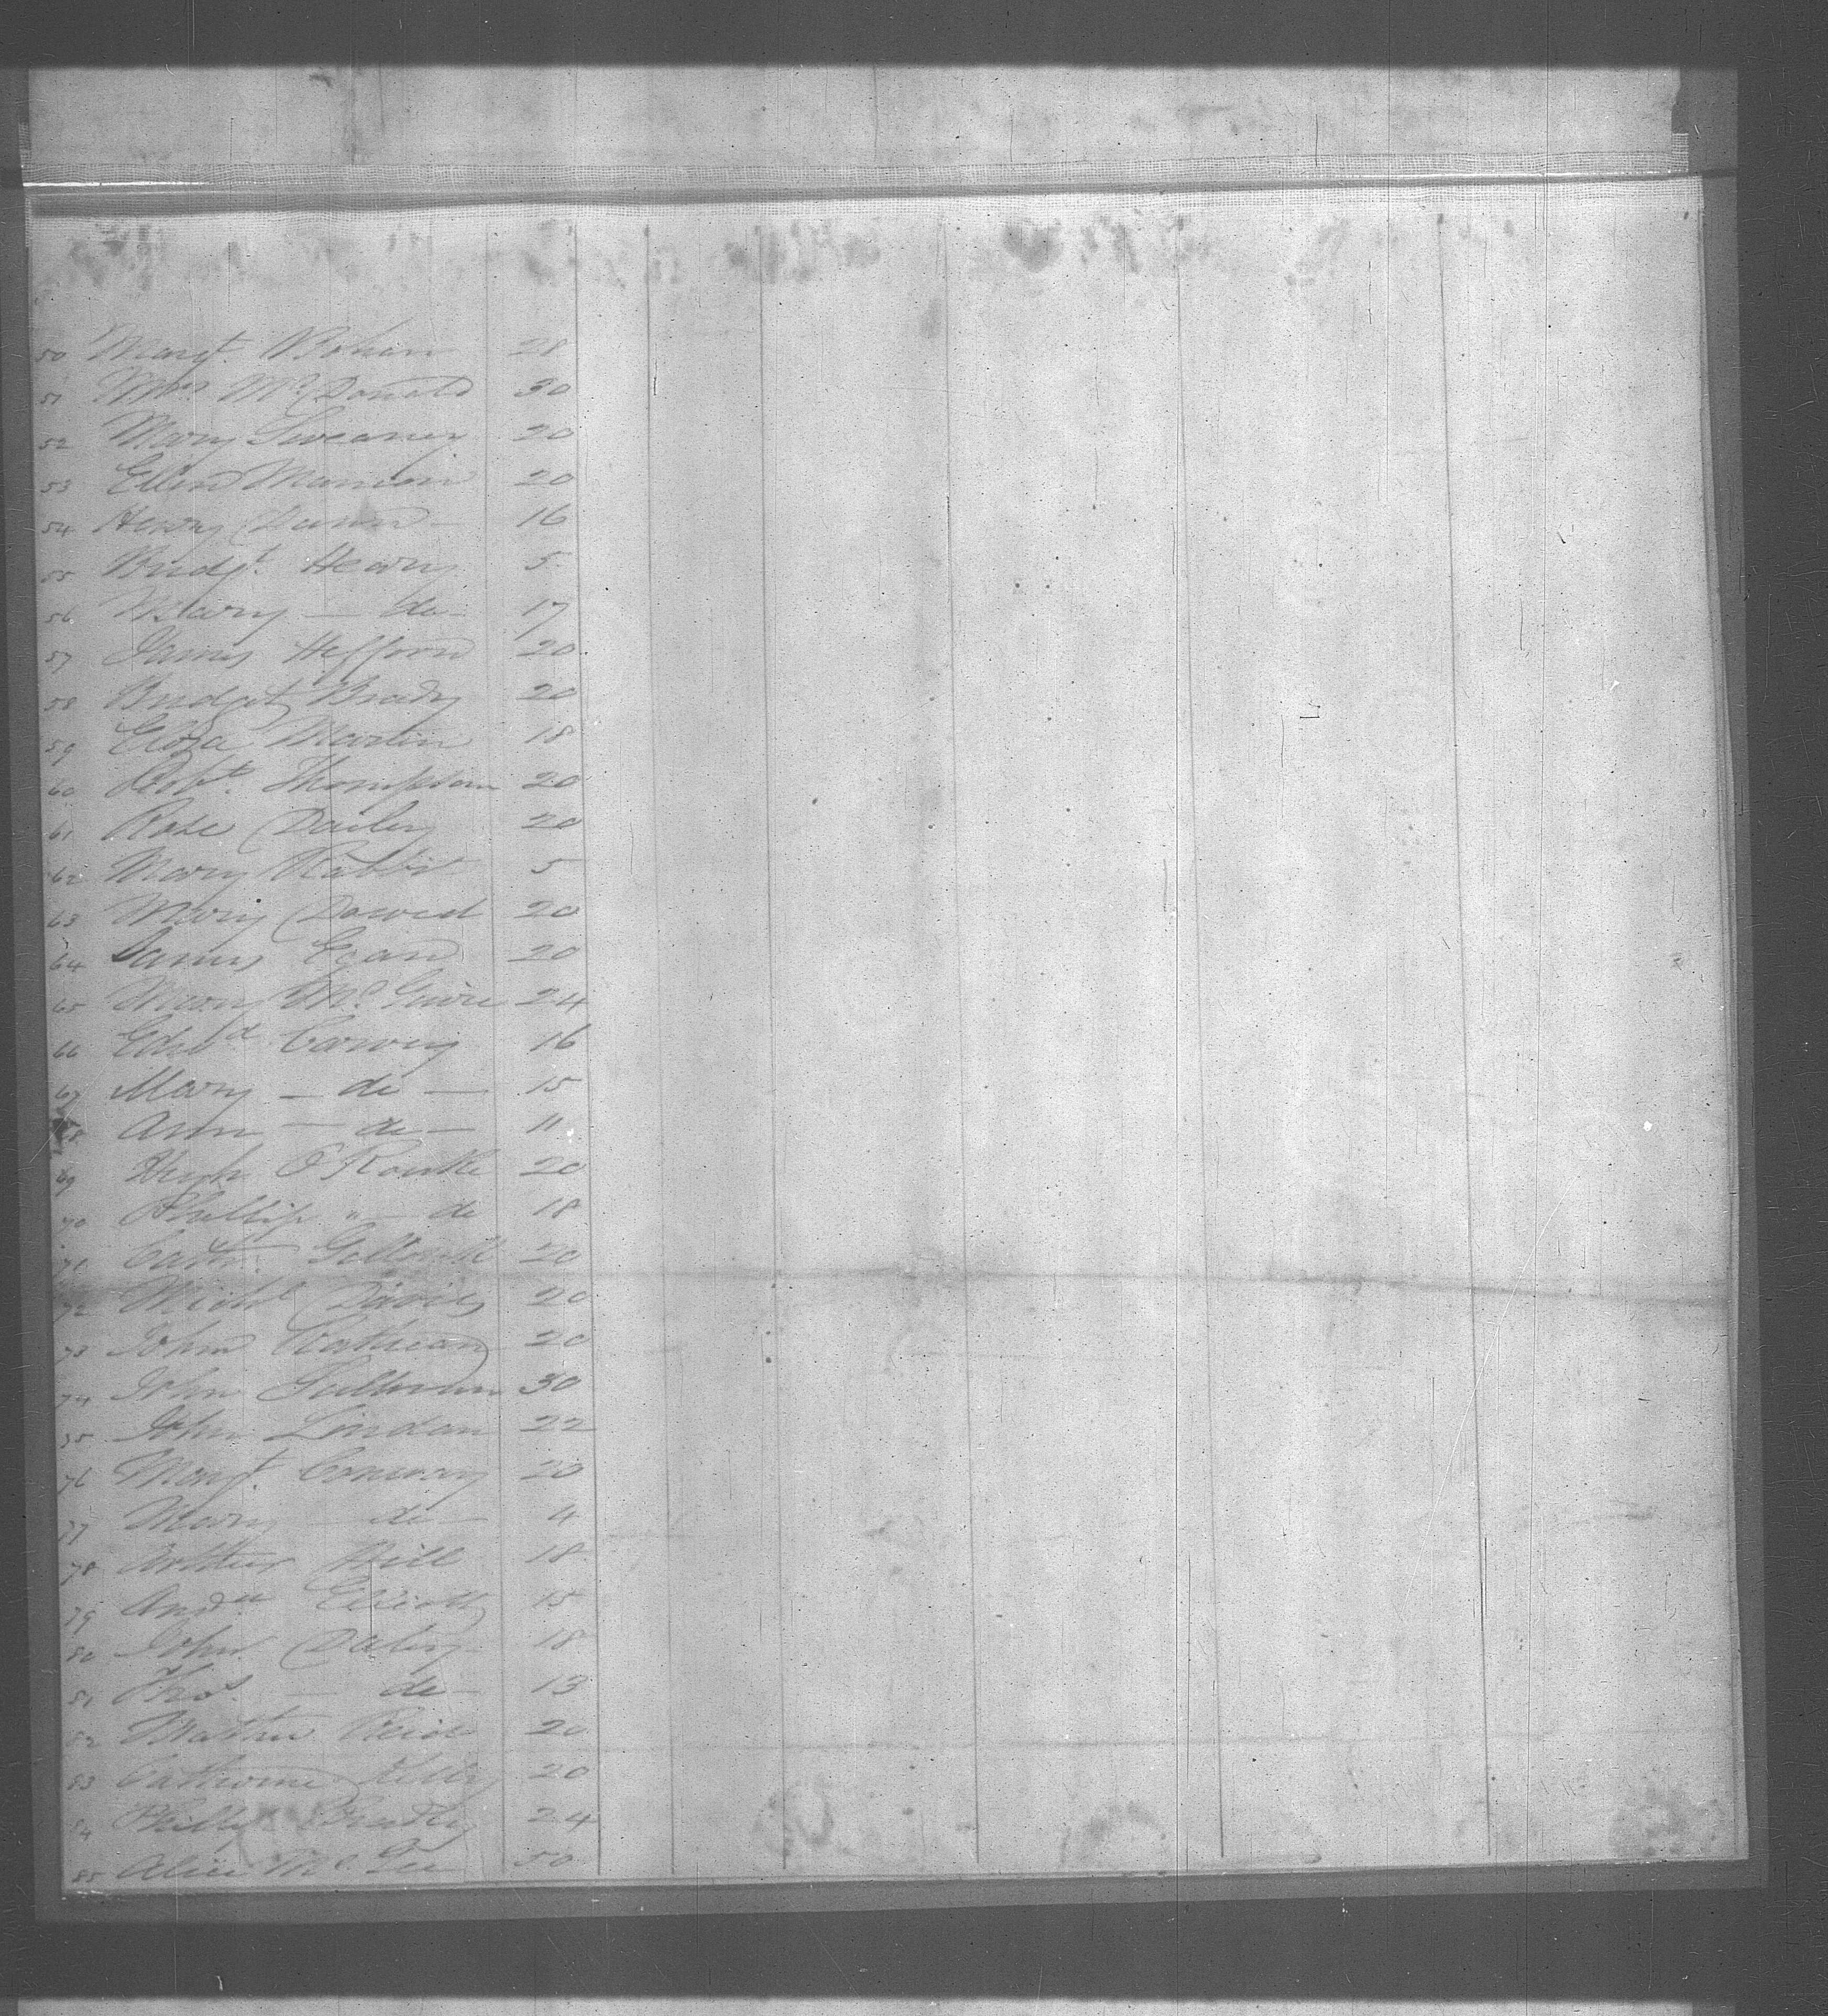 50 Margt. Bohan 28
51 Mrs. McDonald 30
52 Mary Sweaney 20
53 Ellen Manion 20
54 Henry Dunn 16
55 Bridgt. Henry 5
56 Mary — do — 17
57 James Hefford 20
58 Bridget Brady 20
59 Eliza Martin 18
60 Robt. Thompson 20
61 Rose Dailey 20
62 Mary Rabbit 5
63 Mary Dowed 20
64 James Egan 20
65 Mary McGuire 24
66 Edwd Carvey 16
67 Mary — do — 15
68 Ann — do — 11
69 Hugh O'Rourke 20
70 Phillip " — do 18
71 Cath. 20
72 Michl Davis 20
73 John 20
74 John Sullivan 30
75 John Lindan 22
76 Margt. Conway 20
77 Mary — do — 4
78 Arthur Hill 18
79 Andw Elliott 15
80 John Daley 18
81 Thos. — do — 13
82 Mathw Reid 20
83 Catherine Kelly 20
84 Phillip 24
85 Alice McGee 50